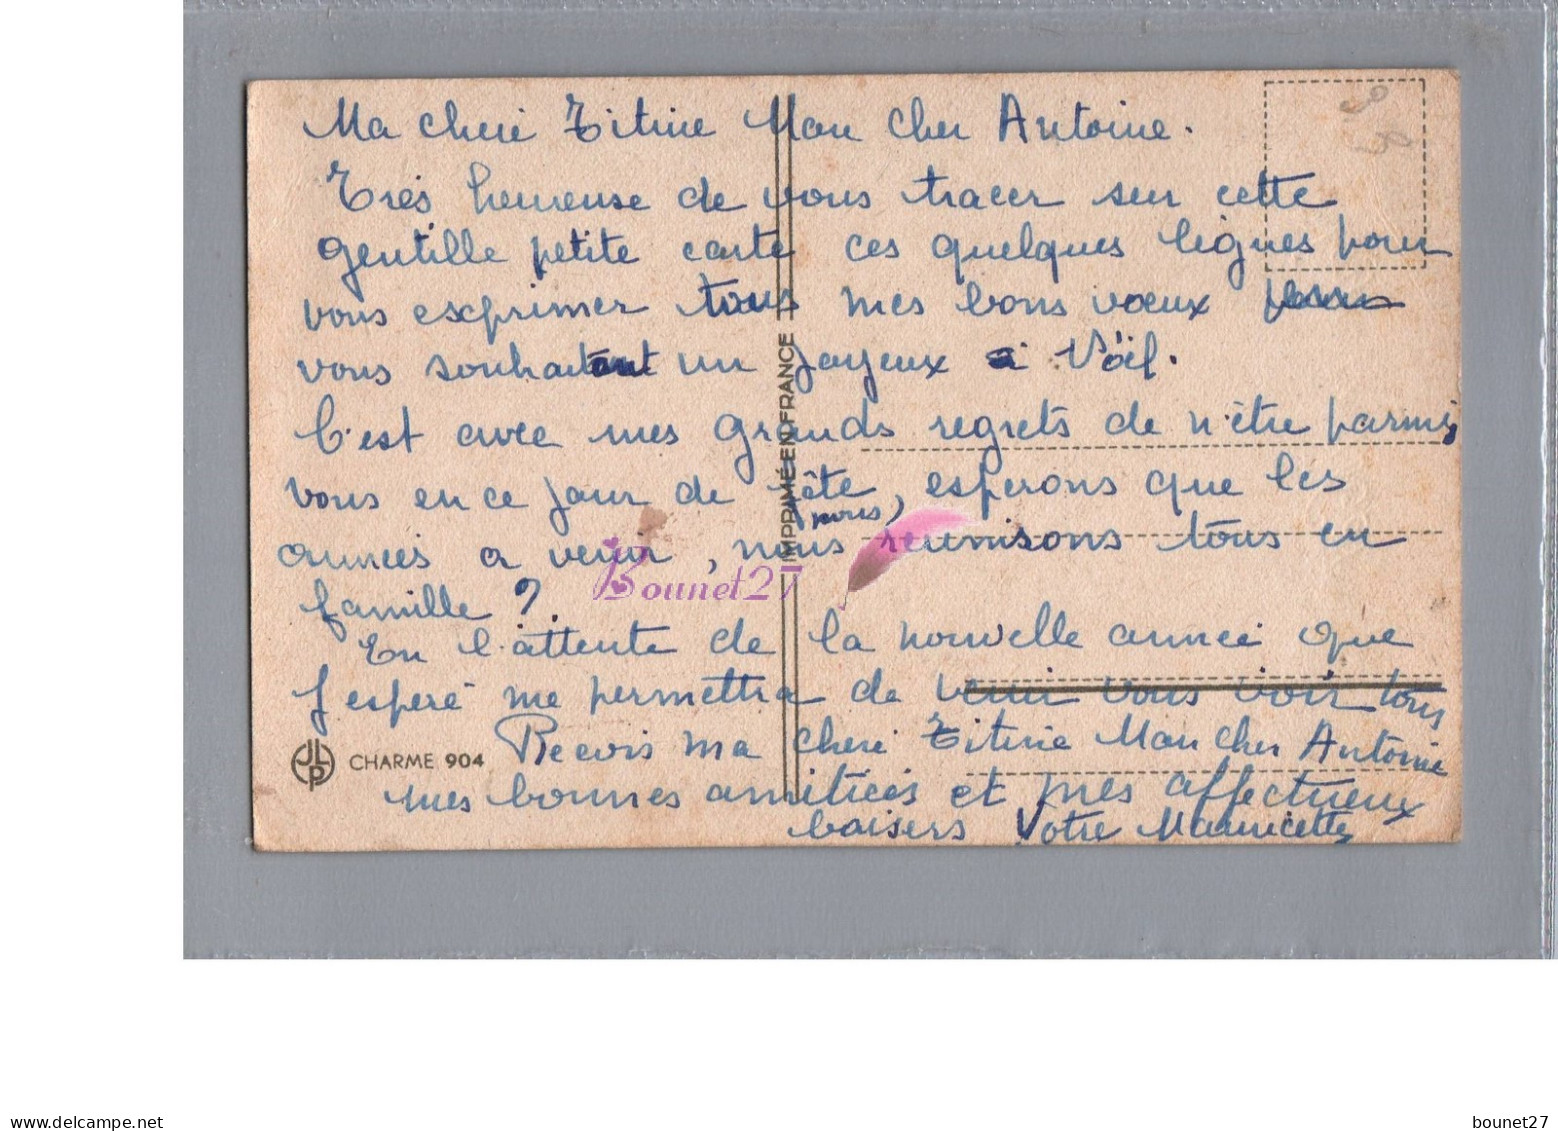 Ma cheri Titine Mon cher Antoine.
Très heureuse de vous tracer sur cette
gentille petite carte ces quelques lignes pour
vous exprimer tous mes bons voeux
vous souhaitant un joyeux Nöel.
C'est avec mes grands regrets de n'être parmis
vous en ce jour de fête, esperons que les
nous,
années a venir, nous reunisons tous en
famille ?
En l'attente de la nouvelle année que
J'esperé me permettra de venir vous voir tous
Recevis ma cheri Titine Mon cher Antoine
mes bonnes amitiées et mes affectueux
baisers Votre Mauricette
IMPRIMÉ EN FRANCE
JLP
CHARME 904
Bounet27
delcampe.net
bounet27